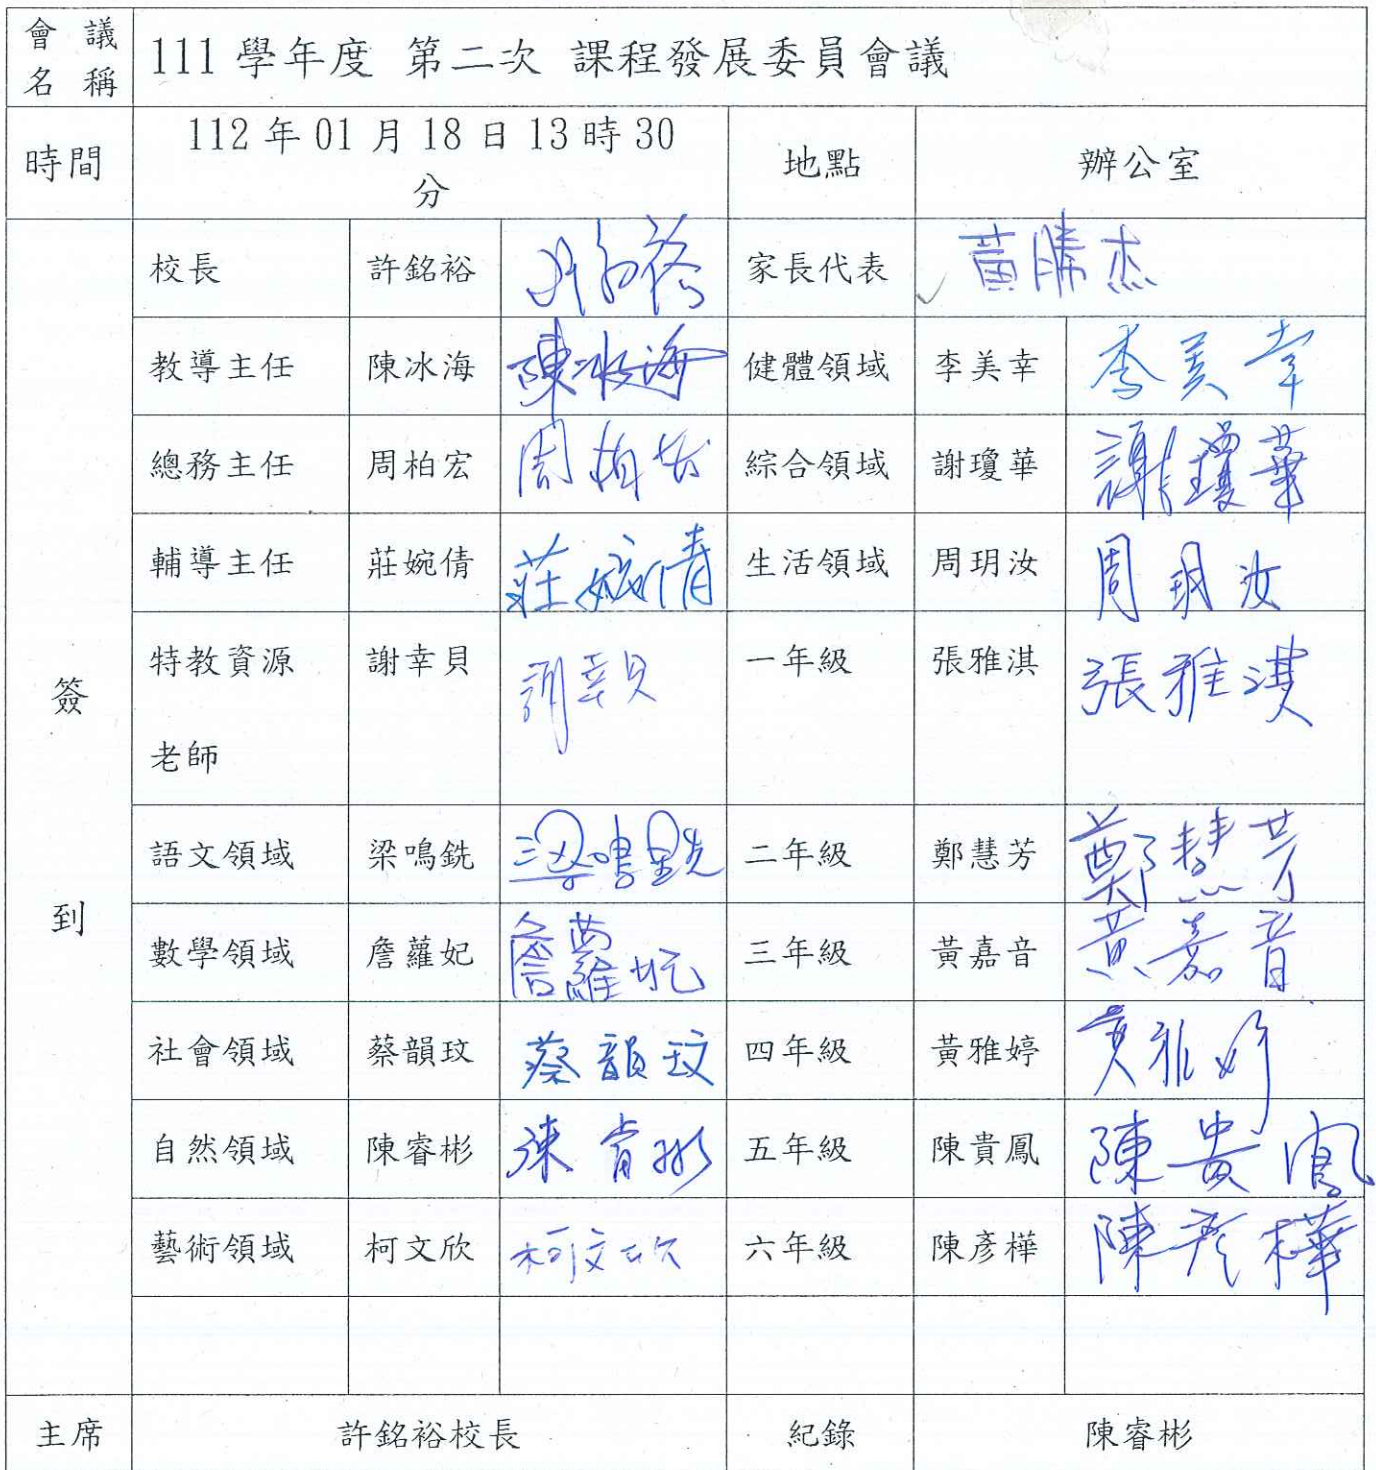 會議
名稱
111 學年度 第二次 課程發展委員會議
時間
112 年 01 月 18 日 13 時 30
分
地點
辦公室
簽
到
校長 許銘裕 許銘裕 家長代表 黃勝杰
教導主任 陳冰海 陳冰海 健體領域 李美幸 李美幸
總務主任 周柏宏 周柏宏 綜合領域 謝瓊華 謝瓊華
輔導主任 莊婉倩 莊婉倩 生活領域 周玥汝 周玥汝
特教資源 謝幸貝 謝幸貝 一年級 張雅淇 張雅淇
老師
語文領域 梁鳴銑 梁鳴銑 二年級 鄭慧芳 鄭慧芳
數學領域 詹蘿妃 詹蘿妃 三年級 黃嘉音 黃嘉音
社會領域 蔡韻玟 蔡韻玟 四年級 黃雅婷 黃雅婷
自然領域 陳睿彬 陳睿彬 五年級 陳貴鳳 陳貴鳳
藝術領域 柯文欣 柯文欣 六年級 陳彥樺 陳彥樺
主席 許銘裕校長 紀錄 陳睿彬